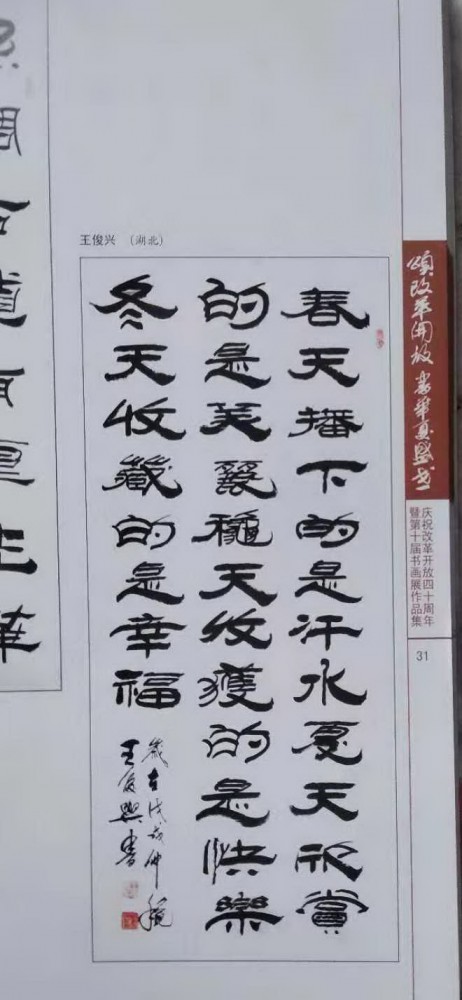 王俊兴 （湖北）
春天播下的是汗水夏天欣賞
的是美麗穐天收獲的是快樂
冬天收藏的是幸福
歲在戊戌仲穐
王俊興書
頌改革開放 書華夏盛世
庆祝改革开放四十周年
暨第十届书画展作品集
31